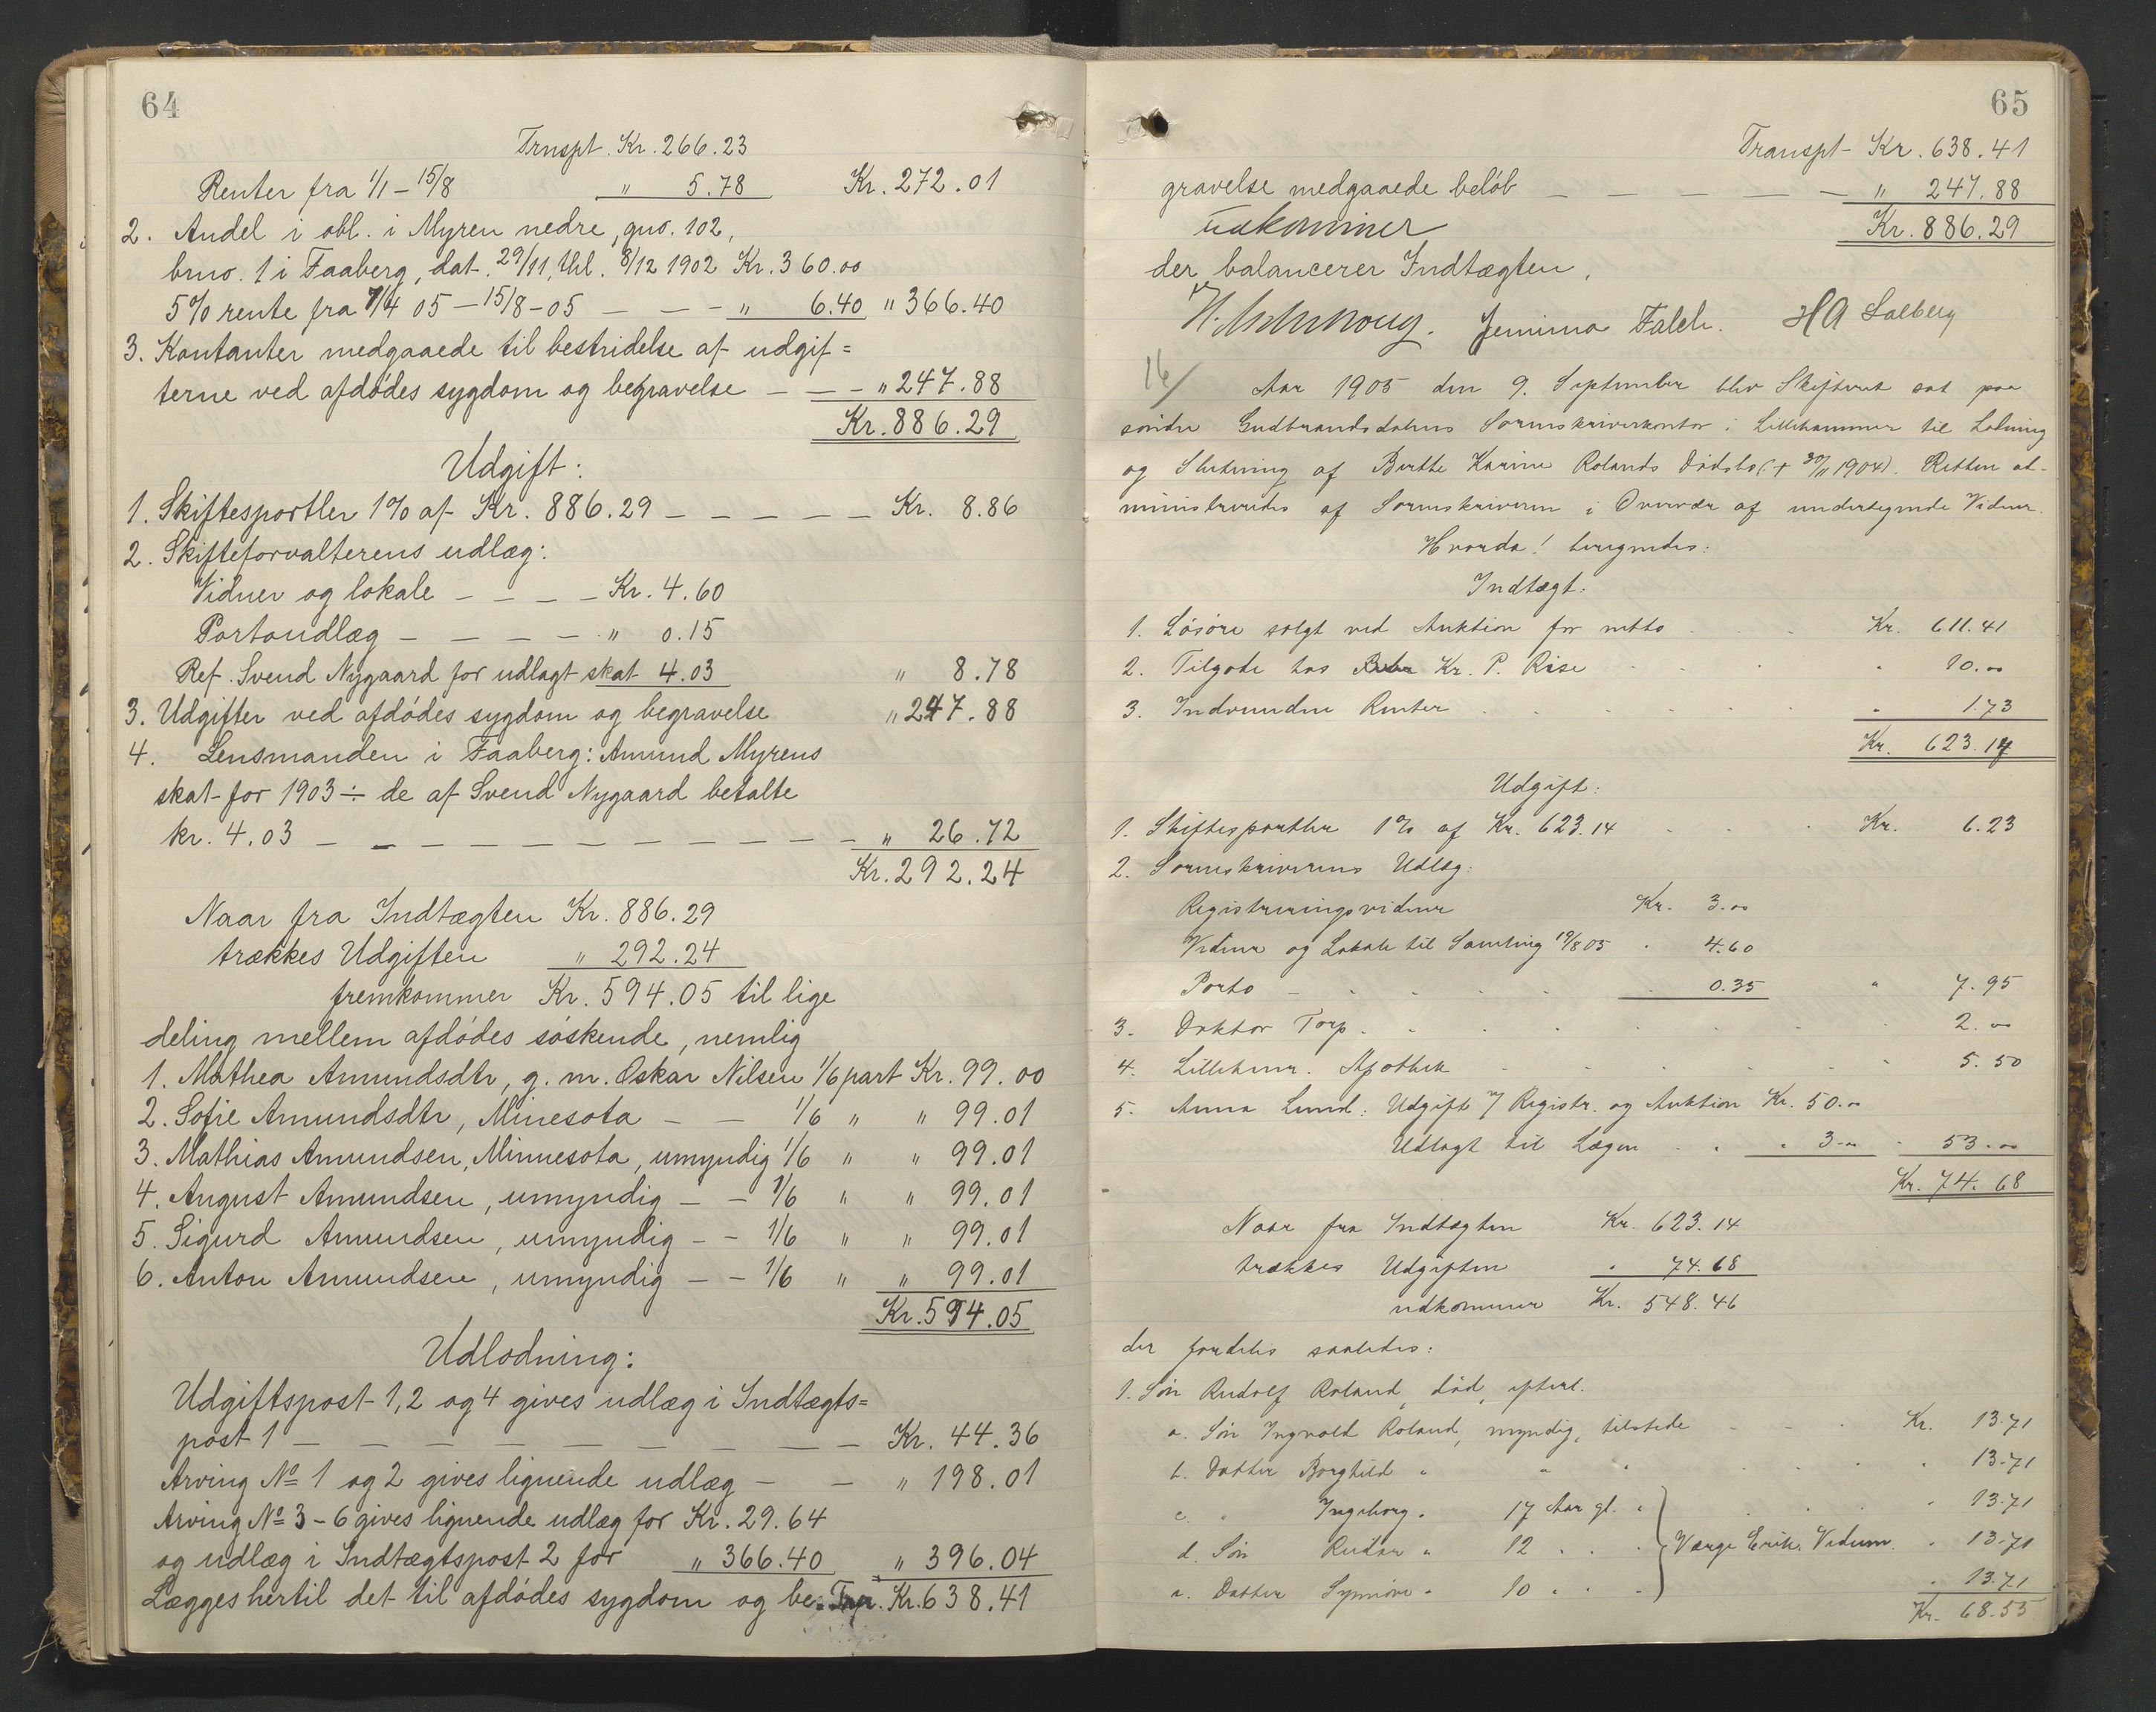 64
Trnspt. Kr. 266.23
Renter fra 1/1 – 15/8 " 5.78 Kr. 272.01
2. Andel i obl. i Myren nedre, gno. 102,
bno. 1 i Faaberg, dat. 29/11, thl. 8/12 1902 Kr. 360.00
5% rente fra 7/4 05 – 15/8 – 05 – – – " 6.40 " 366.40
3. Kontanter medgaaede til bestridelse af udgif=
terne ved afdødes sygdom og begravelse – – – " 247.88
Kr. 886.29
Udgift:
1. Skiftesportler 1% af Kr. 886.29 – – – – – Kr. 8.86
2. Skifteforvalterens udlæg:
Vidner og lokale – – – – Kr. 4.60
Portoudlæg – – – – " 0.15
Ref. Svend Nygaard for udlagt skat 4.03 " 8.78
3. Udgifter ved afdødes sygdom og begravelse " 247.88
4. Lensmanden i Faaberg: Amund Myrens
skat for 1903 ÷ de af Svend Nygaard betalte
kr. 4.03 – – – – – – – – – – – " 26.72
Kr. 292.24
Naar fra Indtægten Kr. 886.29
trækkes Udgiften " 292.24
fremkommer Kr. 594.05 til lige
deling mellem afdødes søskende, nemlig
1. Mathea Amundsdtr, g. m. Oskar Nilsen 1/6 part Kr. 99.00
2. Sofie Amundsdtr, Minesota – – 1/6 " " 99.01
3. Mathias Amundsen, Minnesota, umyndig 1/6 " " 99.01
4. August Amundsen, umyndig – – 1/6 " " 99.01
5. Sigurd Amundsen, umyndig – – 1/6 " " 99.01
6. Anton Amundsen, umyndig – – 1/6 " " 99.01
Kr. 594.05
Udlodning:
Udgiftspost 1, 2 og 4 gives udlæg i Indtægts=
post 1 – – – – – – – – Kr. 44.36
Arving No 1 og 2 gives lignende udlæg – – " 198.01
Arving No 3 – 6 gives lignende udlæg for Kr. 29.64
og udlæg i Indtægtspost 2 for " 366.40 " 396.04
Lægges hertil det til afdødes sygdom og be= Trp. Kr. 638.41
65
Transpt – Kr. 638.41
gravelse medgaaede beløb – – – – – " 247.88
udkommer Kr. 886.29
der balancerer Indtægten.
Jemima Falch. HA Solberg
16/
Aar 1905 den 9. September blev Skifteret sat paa
søndre Gudbrandsdalens Sorenskriverkontor i Lillehammer til Lodning
og Slutning af Berthe Karine Rolands Dødsbo († 30/11 1904). Retten ad-
ministreredes af Sorenskriveren i Overvær af undertegnede Vidner.
Hvorda! beregnedes:
Indtægt:
1. Løsøre solgt ved Auktion for netto Kr. 611.41
2. Tilgode hos Kr. P. Rise " 10.00
3. Indvundne Renter " 1.73
Kr. 623.14
Udgift:
1. Skiftesportler 1% af Kr. 623.14 Kr. 6.23
2. Sorenskriverens Udlæg:
Registreringsvidner Kr. 3.00
Vidner og Lokale til Samling 19/8 05 " 4.60
Porto – 0.35 " 7.95
3. Doktor Torp 2.00
4. Lillehmr. Apothek 5.50
5. Anna Lund: Udgift v/ Registr. og Auktion Kr. 50.00
Udlagt til Lægen " 3.00 53.00
Kr. 74.68
Naar fra Indtægten Kr. 623.14
trækkes Udgiften " 74.68
udkommer Kr. 548.46
der fordeles saaledes:
1. Søn Rudolf Roland, død, efterl.
a. Søn Ingvald Roland, myndig, tilstede Kr. 13.71
b. Datter Borghild " " " " 13.71
c. " Ingeborg " 17 Aar gl. " " 13.71
d. Søn Reidar " 12 " " " Værge Erik Vedum " 13.71
e. Datter Synnøve " 10 " " " " 13.71
Kr. 68.55